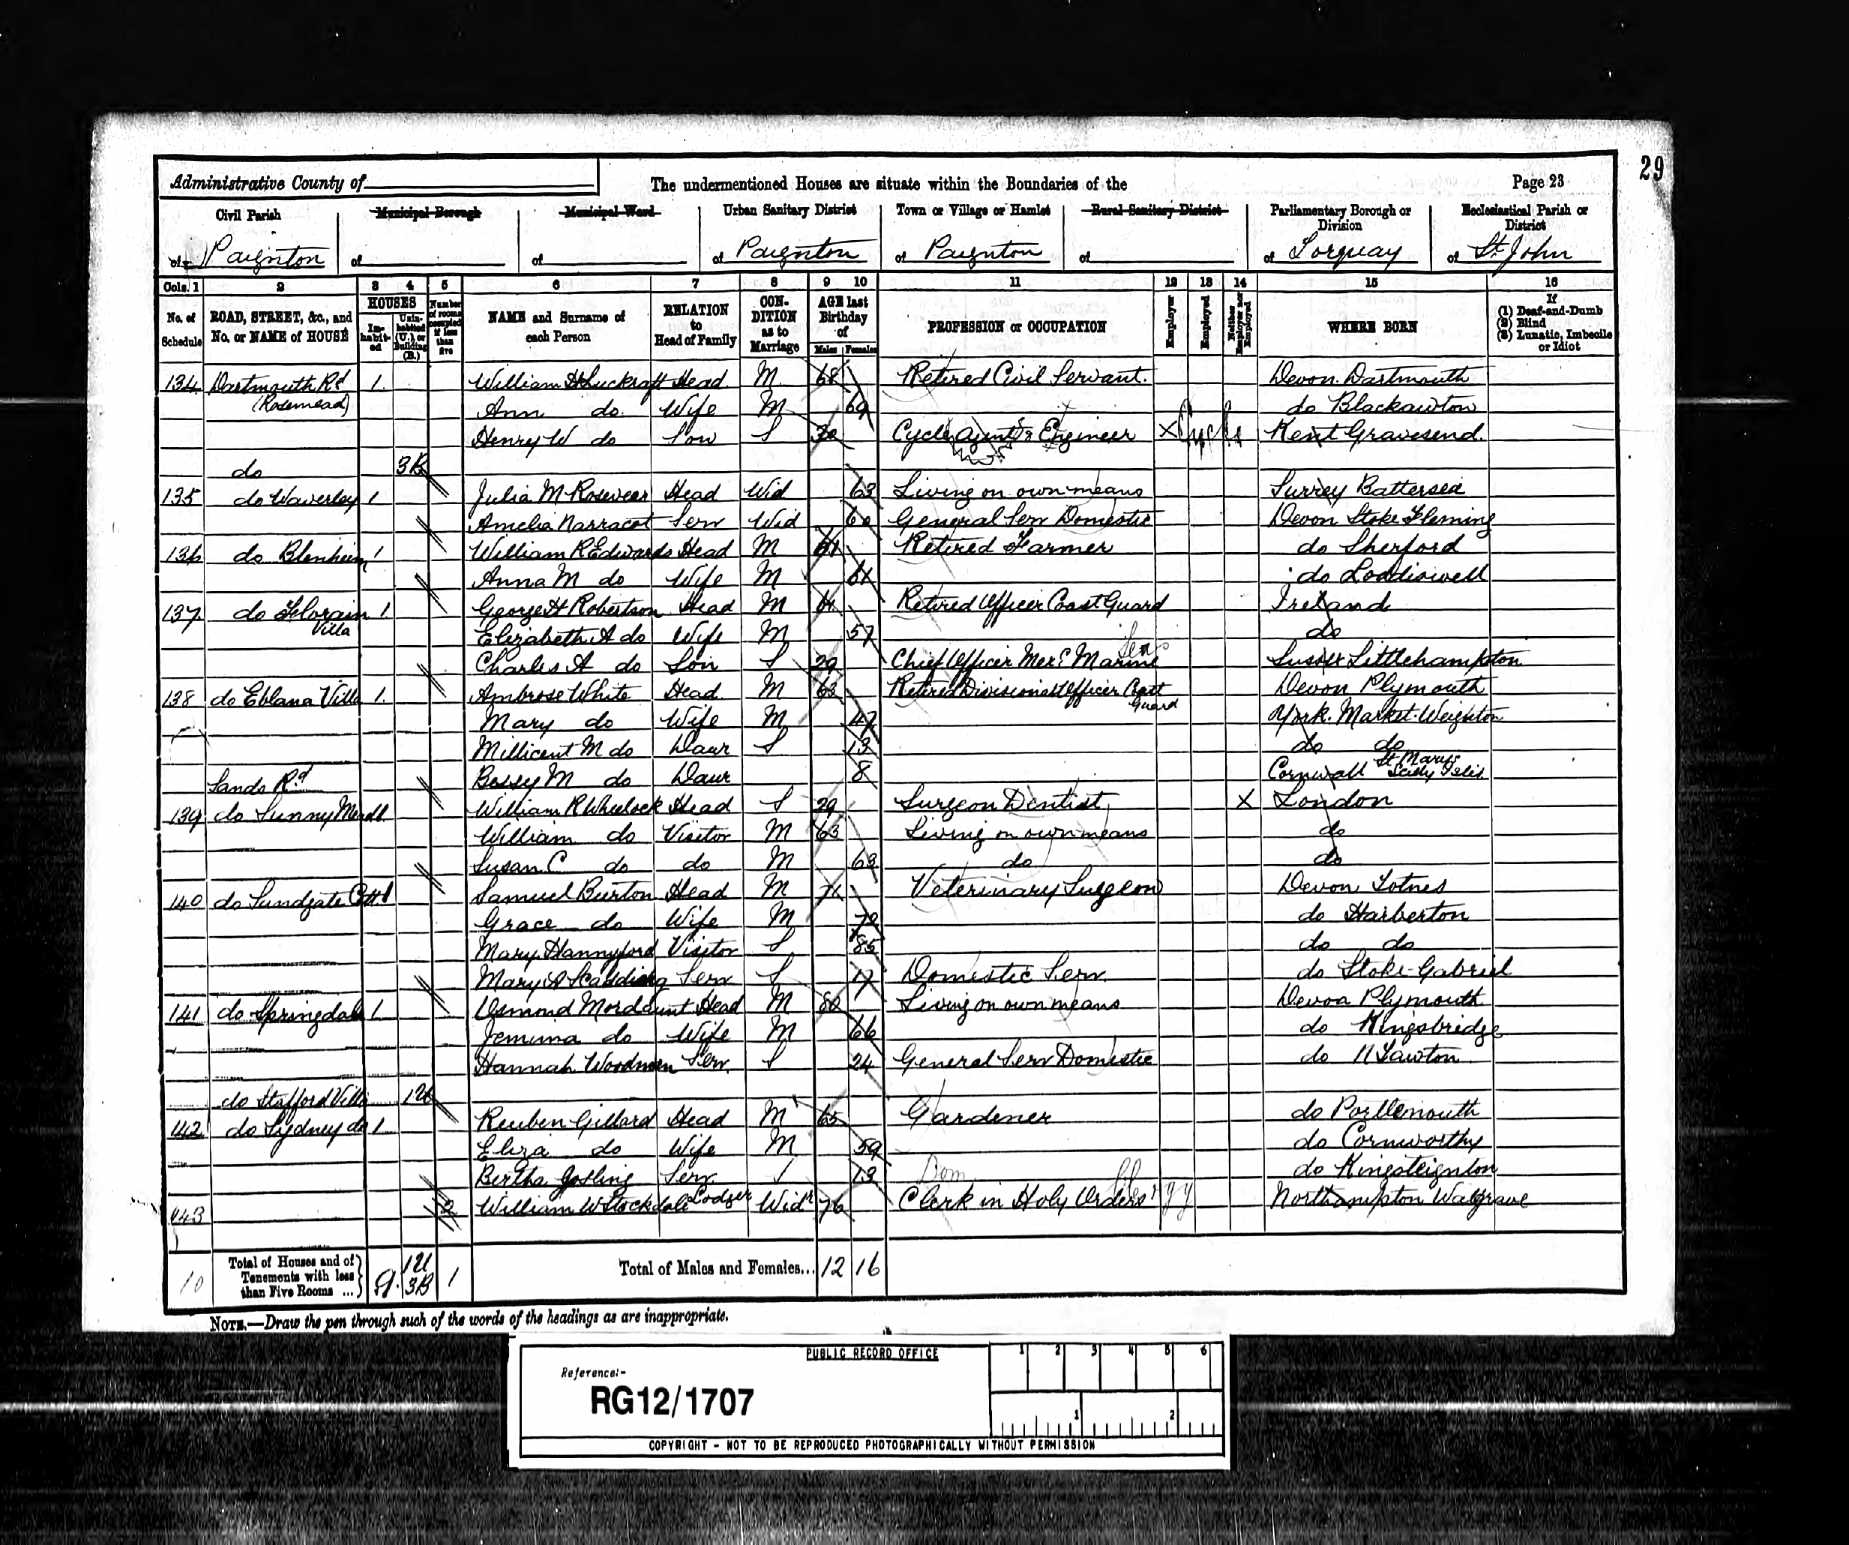 29
Administrative County of
The undermentioned Houses are situate within the Boundaries of the
Page 23
Civil Parish of Paignton
Municipal Borough of
Municipal Ward of
Urban Sanitary District of Paignton
Town or Village or Hamlet of Paignton
Rural Sanitary District of
Parliamentary Borough or Division of Torquay
Ecclesiastical Parish or District of St. John
Cols. 1 2 3 4 5 6 7 8 9 10 11 12 13 14 15 16
No. of Schedule
ROAD, STREET, &c., and No. or NAME of HOUSE
HOUSES
Inhabited
Uninhabited (U.) or Building (B.)
Number of rooms occupied if less than five
NAME and Surname of each Person
RELATION to Head of Family
CONDITION as to Marriage
AGE last Birthday of
Males Females
PROFESSION or OCCUPATION
Employer
Employed
Neither Employer nor Employed
WHERE BORN
If (1) Deaf-and-Dumb (2) Blind (3) Lunatic, Imbecile or Idiot
134 Dartmouth Rd 1 William H Luckraft Head M 68 Retired Civil Servant. Devon Dartmouth
(Rosemead) Ann do Wife M 69 do Blackawton
Henry W do Son S 30 Cycle Agent & Engineer X Kent Gravesend
do 3B
135 do Waverley 1 Julia M Rosevear Head Wid 63 Living on own means Surrey Battersea
Amelia Narracot Serv Wid 60 General Serv Domestic Devon Stoke Fleming
136 do Blenheim 1 William R Edwards Head M 61 Retired Farmer do Sherford
Anna M do Wife M 61 do Loddiswell
137 do Villa 1 George H Robertson Head M Retired Officer Coast Guard Ireland
Elizabeth A do Wife M 57 do
Charles A do Son S 29 Chief Officer Mert Marine Sussex Littlehampton
138 do Eblana Villa 1 Ambrose White Head M 63 Retired Divisional Officer Coast Guard Devon Plymouth
Mary do Wife M 47 York. Market Weighton
Millicent M do Daur S 13 do do
Sands Rd Bessy M do Daur 8 Cornwall St Mary Scilly Isles
139 do Sunny William R Wheelock Head S 29 Surgeon Dentist X London
William do Visitor M 63 Living on own means do
Susan C do do M 63 do do
140 do Sundgate Cott 1 Samuel Burton Head M 71 Veterinary Surgeon Devon Totnes
Grace do Wife M 72 do Harberton
Mary Hannyford Visitor S 85 do do
Mary A Scadding Serv S 17 Domestic Serv. do Stoke Gabriel
141 do Springdale 1 Osmond Mordaunt Head M 82 Living on own means Devon Plymouth
Jemima do Wife M 66 do Kingsbridge
Hannah Woodman Serv. S 24 General Serv Domestic do N Tawton
do Stafford Villa 1U
142 do Sydney do 1 Reuben Gillard Head M 65 Gardener do Portlemouth
Eliza do Wife M 59 do Cornworthy
Bertha Gosling Serv. S 13 Dom do Kingsteignton
143 2 William W Stockdale Lodger Widr 76 Clerk in Holy Orders Northampton Walgrave
10
Total of Houses and of Tenements with less than Five Rooms ... 9. 1U 3B 1
Total of Males and Females... 12 16
NOTE.—Draw the pen through such of the words of the headings as are inappropriate.
PUBLIC RECORD OFFICE
1 2 3 4 5 6
Reference:-
RG12/1707
1 2
COPYRIGHT - NOT TO BE REPRODUCED PHOTOGRAPHICALLY WITHOUT PERMISSION